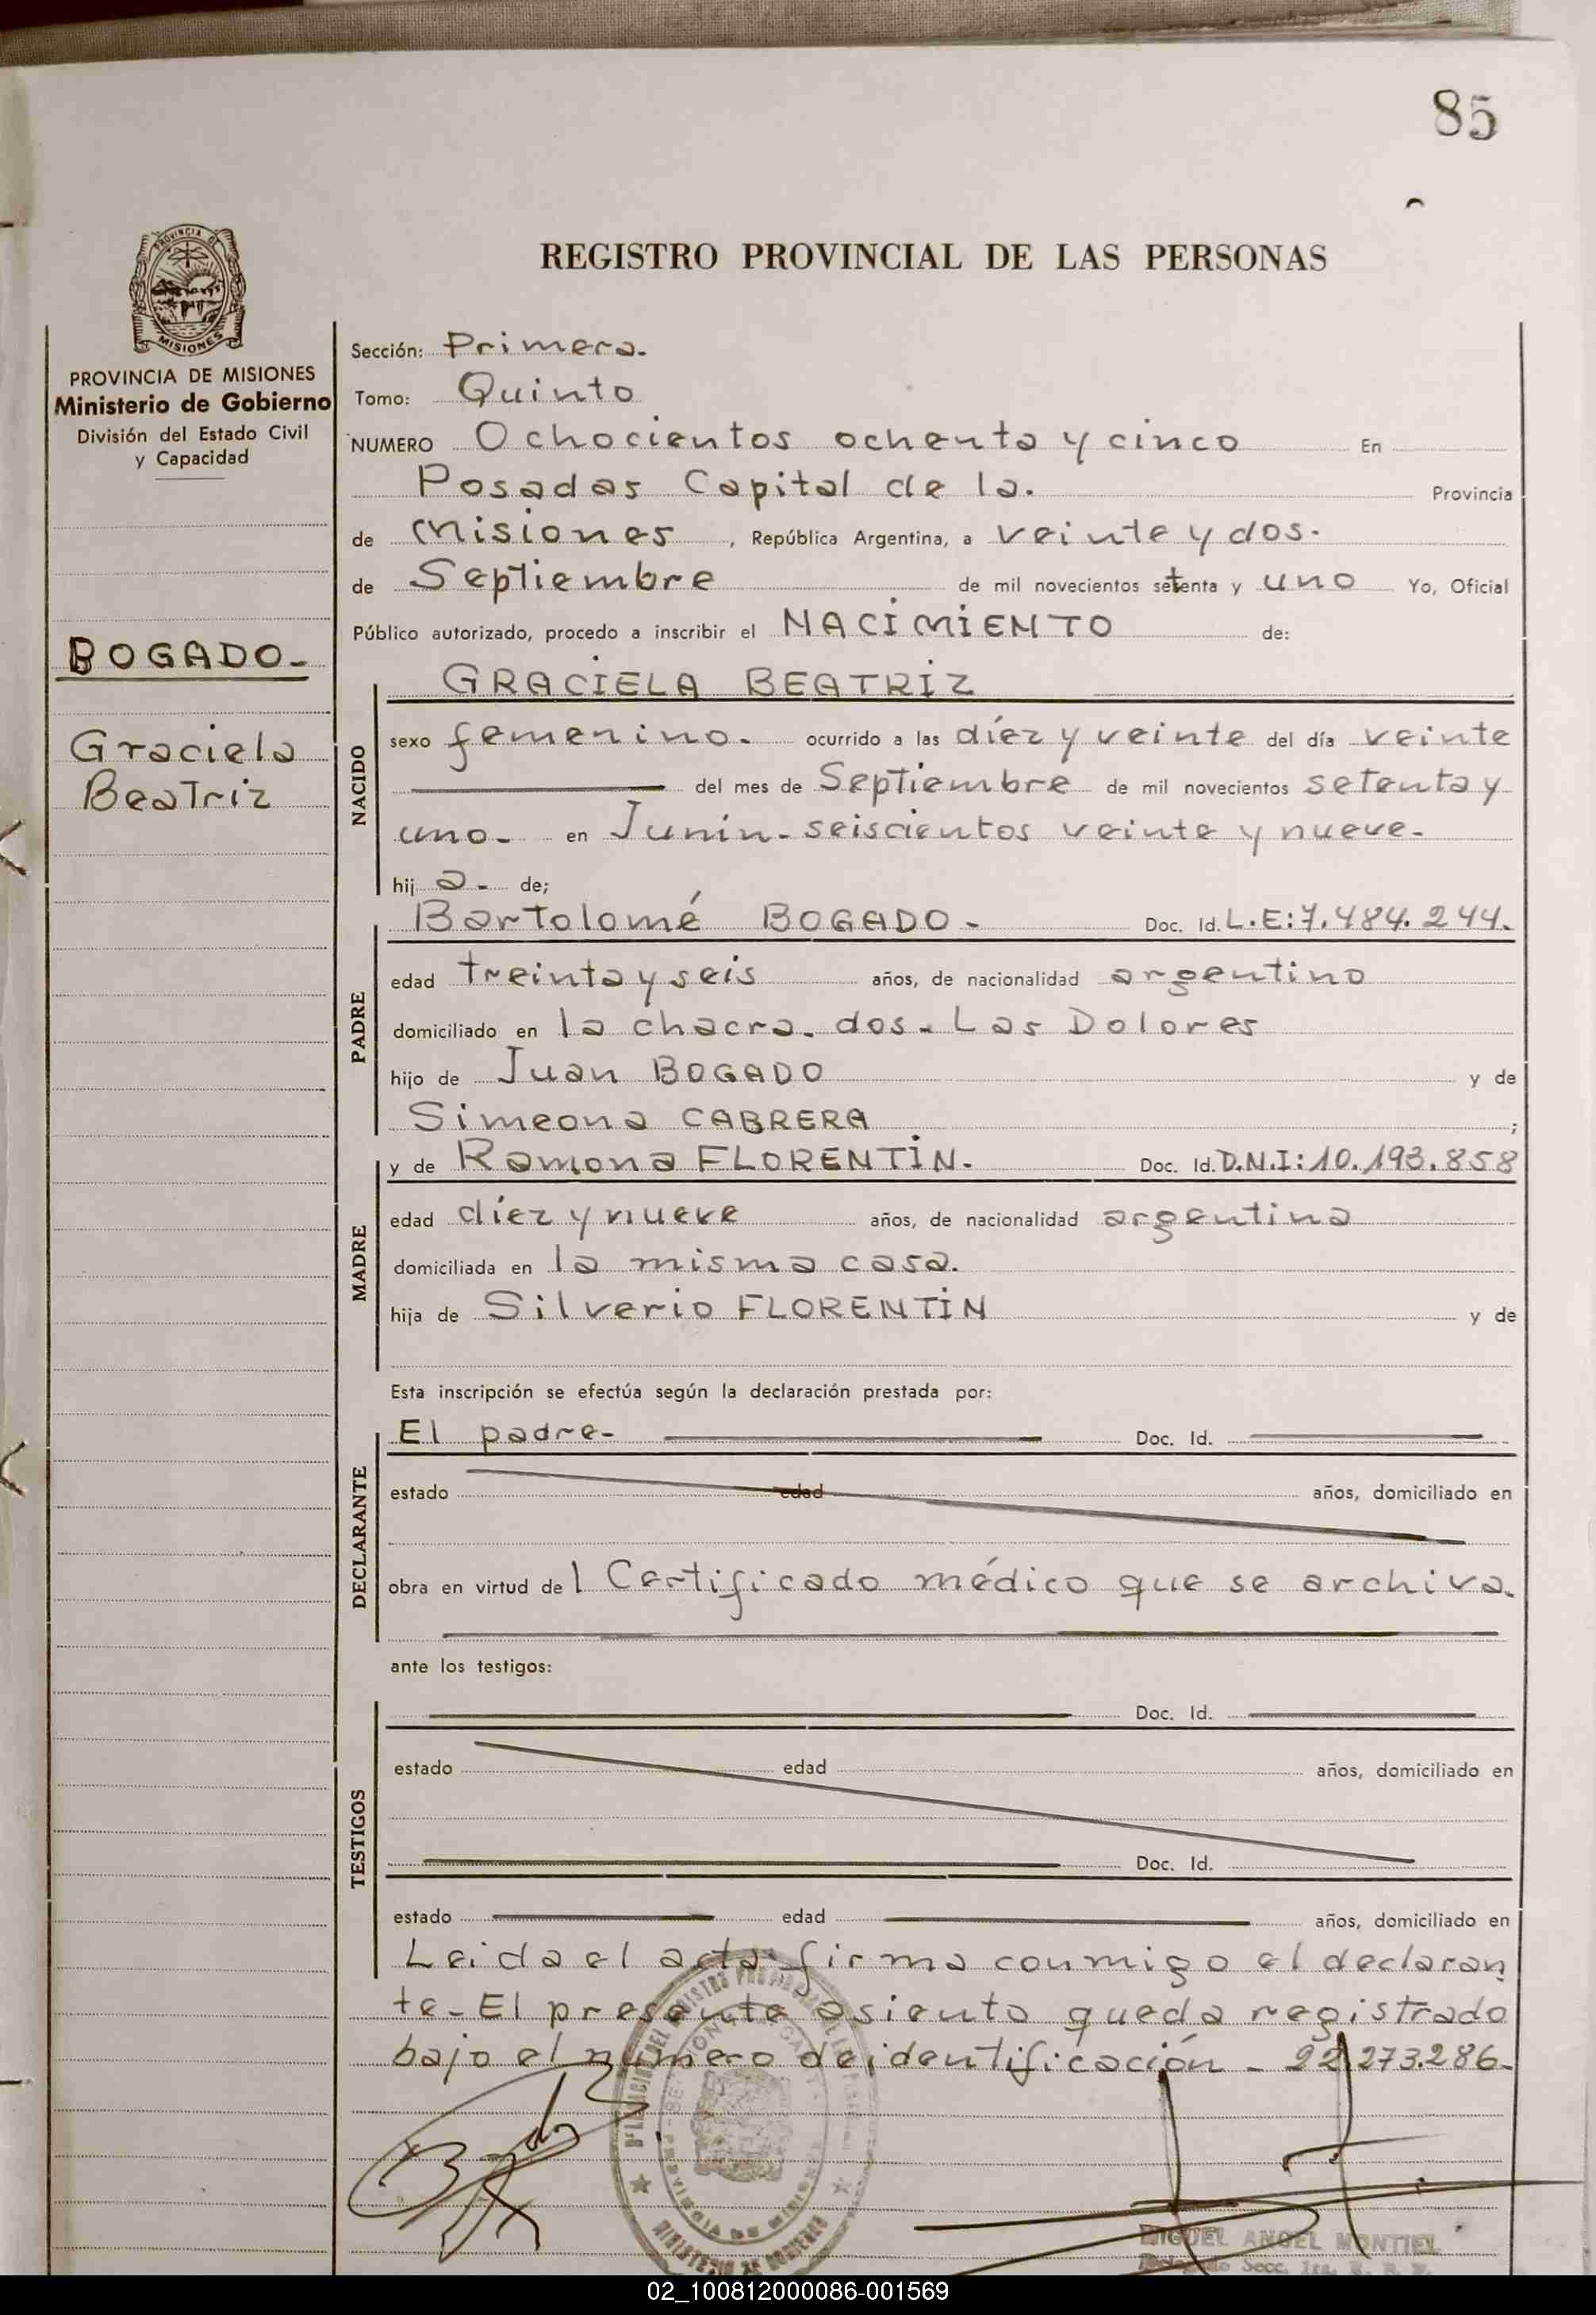 85
REGISTRO PROVINCIAL DE LAS PERSONAS
PROVINCIA DE
MISIONES
PROVINCIA DE MISIONES
Ministerio de Gobierno
División del Estado Civil
y Capacidad
BOGADO-
Graciela
Beatriz
Sección: Primera.
Tomo: Quinto
NUMERO Ochocientos ochenta y cinco En
Posadas Capital de la. Provincia
de Misiones, República Argentina, a veinte y dos.
de Septiembre de mil novecientos setenta y uno Yo, Oficial
Público autorizado, procedo a inscribir el NACIMIENTO de:
NACIDO
GRACIELA BEATRIZ
sexo femenino. ocurrido a las díez y veinte del día veinte
del mes de Septiembre de mil novecientos setenta y
uno. en Junín- seiscientos veinte y nueve.
hija. de;
PADRE
Bartolomé BOGADO- Doc. Id. L.E:7.484.244.
edad treinta y seis años, de nacionalidad argentino
domiciliado en la chacra. dos. Las Dolores
hijo de Juan BOGADO y de
Simeona CABRERA ;
MADRE
y de Ramona FLORENTIN. Doc. Id. D.N.I:10.193.858
edad díez y nueve años, de nacionalidad argentina
domiciliada en la misma casa.
hija de Silverio FLORENTIN y de
Esta inscripción se efectúa según la declaración prestada por:
DECLARANTE
El padre- Doc. Id.
estado edad años, domiciliado en
obra en virtud del Certificado médico que se archiva.
ante los testigos:
TESTIGOS
Doc. Id.
estado edad años, domiciliado en
Doc. Id.
estado edad años, domiciliado en
Leida el acta firma conmigo el declaran
te- El presente asiento queda registrado
bajo el número de identificación - 22.273.286-
PROVINCIA DE MISIONES
MINISTERIO DE GOBIERNO
MIGUEL ANGEL MONTIEL
02_100812000086-001569